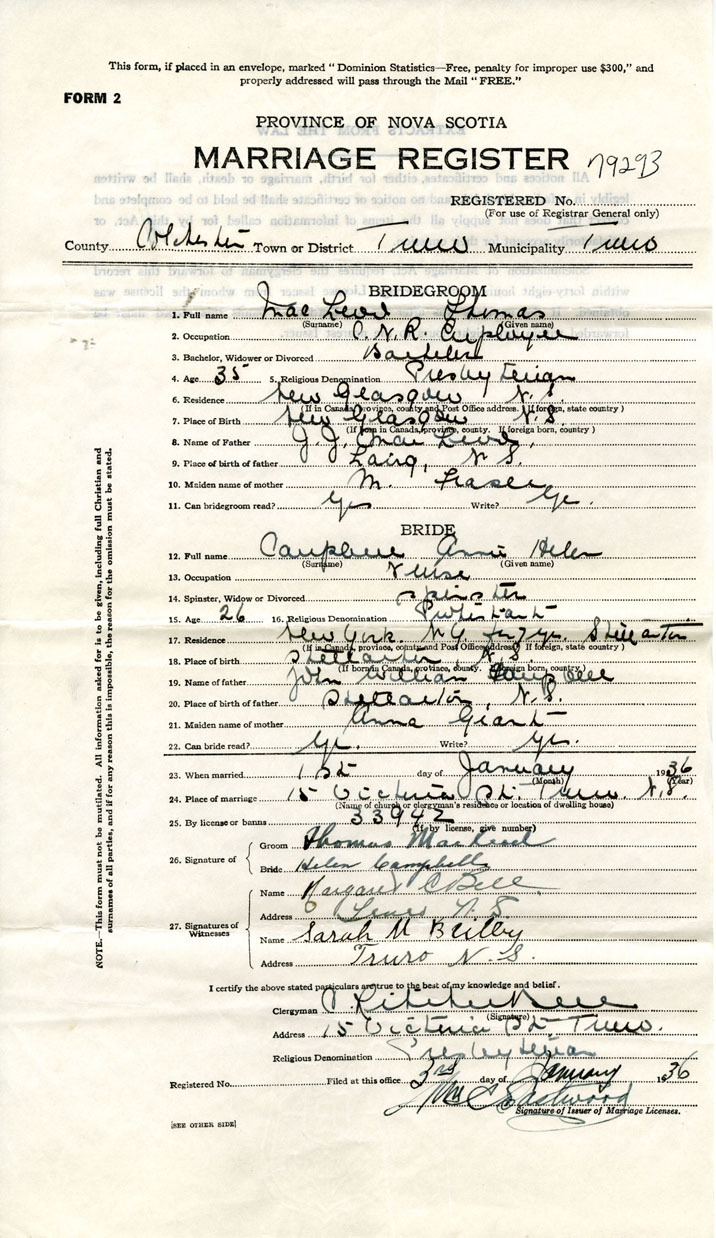 This form, if placed in an envelope, marked "Dominion Statistics—Free, penalty for improper use $300," and
properly addressed will pass through the Mail "FREE."
FORM 2
PROVINCE OF NOVA SCOTIA
MARRIAGE REGISTER 79293
REGISTERED No.
(For use of Registrar General only)
County Colchester Town or District Truro Municipality Truro
BRIDEGROOM
1. Full name Mac Leod Thomas
(Surname) (Given name)
2. Occupation C.N.R. Employee
3. Bachelor, Widower or Divorced Bachelor
4. Age 35 5. Religious Denomination Presbyterian
6. Residence New Glasgow N.S.
(If in Canada, province, county and Post Office address. If foreign, state country)
7. Place of Birth New Glasgow N.S.
(If born in Canada, province, county. If foreign born, country.)
8. Name of Father J. J. Mac Leod
9. Place of birth of father Lairg, N.S.
10. Maiden name of mother M. Fraser
11. Can bridegroom read? Yes Write? Ye.
BRIDE
12. Full name Campbell Annie Helen
(Surname) (Given name)
13. Occupation Nurse
14. Spinster, Widow or Divorced Spinster
15. Age 26 16. Religious Denomination Protestant
17. Residence New York. N.Y. for 7 yr. Stellarton
(If in Canada, province, county and Post Office address. If foreign, state country)
18. Place of birth Stellarton N.S.
(If born in Canada, province, county. If foreign born, country.)
19. Name of father John William Campbell
20. Place of birth of father Stellarton, N.S.
21. Maiden name of mother Anna Grant
22. Can bride read? Ye. Write? Ye.
23. When married 1st day of January 1936
(Month) (Year)
24. Place of marriage 15 Victoria St. Truro N.S.
(Name of church or clergyman's residence or location of dwelling house)
25. By license or banns 33942
(If by license, give number)
26. Signature of
Groom Thomas MacLeod
Bride Helen Campbell
27. Signatures of Witnesses
Name Margaret C Bell
Address Truro N.S
Name Sarah M Beilby
Address Truro N.S.
I certify the above stated particulars are true to the best of my knowledge and belief.
Clergyman
(Signature)
Address 15 Victoria St. Truro.
Religious Denomination Presbyterian
Registered No. Filed at this office 3rd day of January 1936
Eastwood
Signature of Issuer of Marriage Licenses.
[SEE OTHER SIDE]
NOTE.—This form must not be mutilated. All information asked for is to be given, including full Christian and
surnames of all parties, and if for any reason this is impossible, the reason for the omission must be stated.